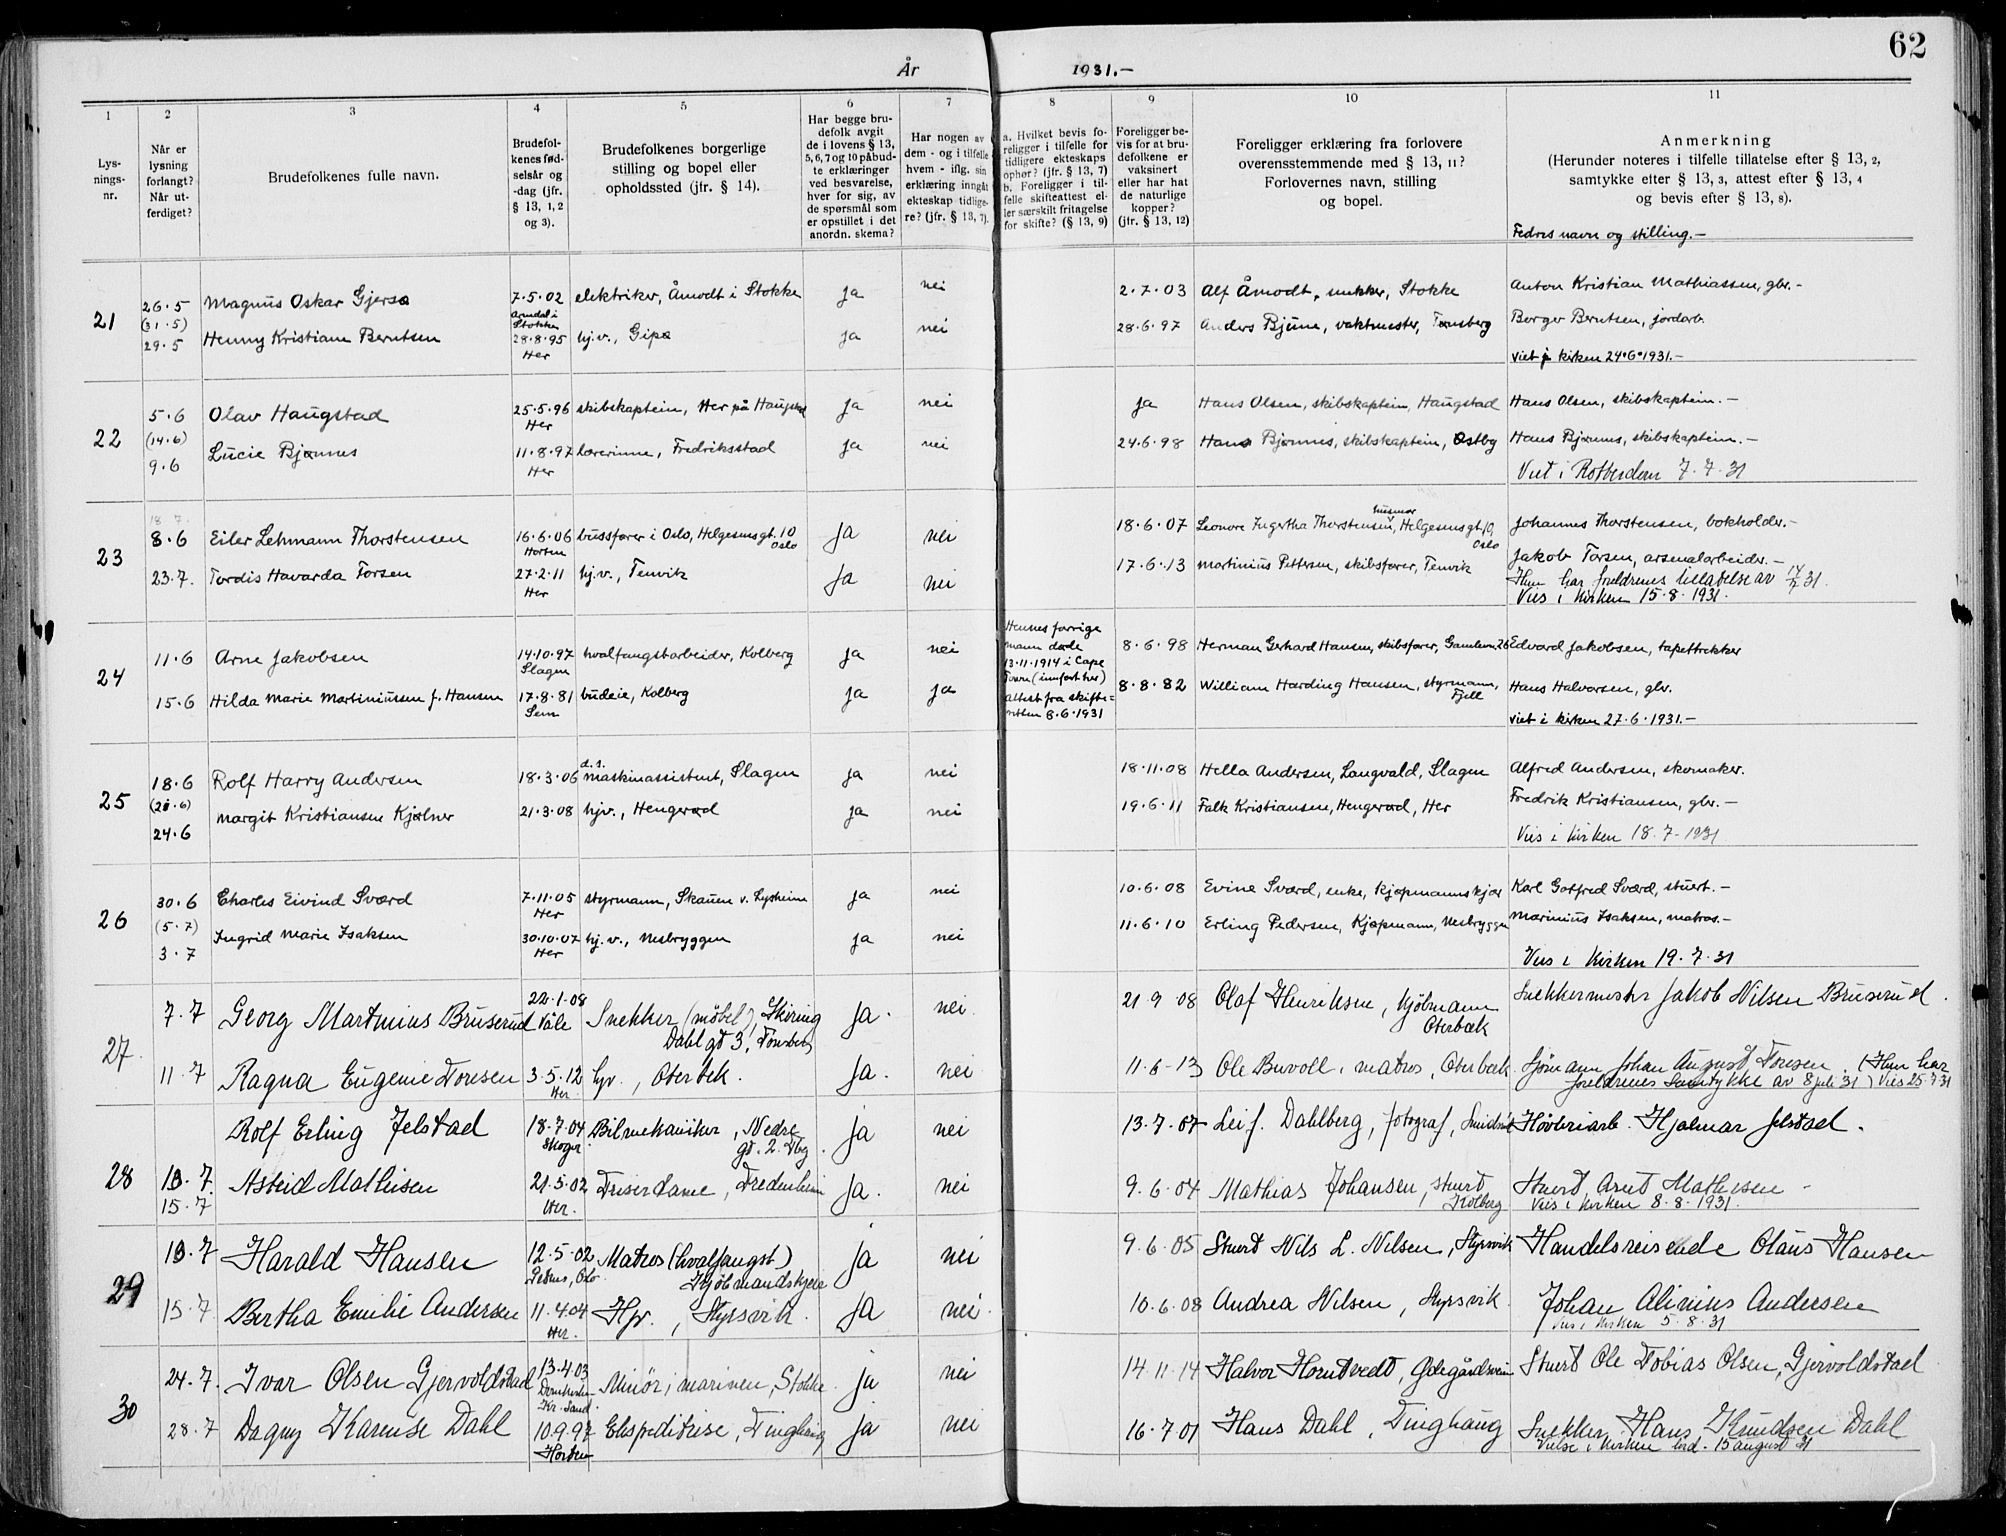 62
År 1931.-
1 2 3 4 5 6 7 8 9 10 11
Lys-
nings-
nr.
Når er
lysning
forlangt?
Når ut-
ferdiget?
Brudefolkenes fulle navn.
Brudefol-
kenes fød-
selsår og
-dag (jfr.
§ 13, 1, 2
og 3).
Brudefolkenes borgerlige
stilling og bopel eller
opholdssted (jfr. § 14).
Har begge bru-
defolk avgit
de i lovens § 13,
5, 6, 7 og 10 påbud-
te erklæringer
ved besvarelse,
hver for sig, av
de spørsmål som
er opstillet i det
anordn. skema?
Har nogen av
dem - og i tilfelle
hvem - iflg. sin
erklæring inngåt
ekteskap tidlige-
re? (jfr. § 13, 7).
a. Hvilket bevis fo-
religger i tilfelle for
tidligere ekteskaps
ophør? (jfr. § 13, 7)
b. Foreligger i til-
felle skifteattest el-
ler særskilt fritagelse
for skifte? (§ 13, 9)
Foreligger be-
vis for at bru-
defolkene er
vaksinert
eller har hat
de naturlige
kopper?
(jfr. § 13, 12)
Foreligger erklæring fra forlovere
overensstemmende med § 13, 11?
Forlovernes navn, stilling
og bopel.
Anmerkning
(Herunder noteres i tilfelle tillatelse efter § 13, 2,
samtykke efter § 13, 3, attest efter § 13, 4
og bevis efter § 13, 8).
Fedres navn og stilling.-
21
26.5 Magnus Oskar Gjersø 7.5.02 elektriker, Åmodt i Stokke ja nei 2.7.03 Alf Åmodt, snekker, Stokke Anton Kristian Mathiassen, gbr.-
(31.5) Arndal i Stokke
29.5 Henny Kristiane Berntsen 28.8.95 hj.v., Gipø ja nei 28.6.97 Anders Bjune, vaktmester, Tønsberg Borger Berntsen, jordarb.
Her
viet i kirken 24.6.1931.-
22
5.6 Olav Haugstad 25.5.96 skibskaptein, Her på Haugstad ja nei ja Hans Olsen, skibskaptein, Haugstad Hans Olsen, skibskaptein.-
(14.6) Her
9.6 Lucie Bjønnes 11.8.97 lærerinne, Fredriksstad ja nei 24.6.98 Hans Bjønnes, skibskaptein, Østby Hans Bjønnes, skibskaptein.-
Her
Viet i Rotterdam 7.7.31
23
8.6 Eiler Lehmann Thorstensen 16.6.06 bussfører i Oslo, Helgesensgt. 10 Oslo ja nei 18.6.07 Leonore Ingertha Thorstensen, husmor, Helgesensgt. 10, Oslo Johannes Thorstensen, bokholder.-
Horten
23.7. Tordis Havarda Torsen 27.2.11 hj.v., Tenvik ja nei 17.6.13 Martinius Pettersen, skibsfører, Tenvik Jakob Torsen, arsenalarbeider.-
Her
Hun har foreldrenes tillatelse av 14/7 31.
Vies i kirken 15.8.1931.
24
11.6 Arne Jakobsen 14.10.97 hvalfangstarbeider, Kolberg ja nei 8.6.98 Herman Gerhard Hansen, skibsfører, Gamlevn. 26 Edvard Jakobsen, tapettrykker
Slagen
15.6 Hilda Marie Martiniussen f. Hansen 17.8.81 budeie, Kolberg ja ja 8.8.82 William Harding Hansen, styrmann, Fjell Hans Halvorsen, gbr.
Sem
Hennes forrige
mann døde
13.11.1914 i Cape
Town (innført her)
Attest fra skifte-
retten 8.6.1931
viet i kirken 27.6.1931.-
25
18.6 Rolf Harry Andersen 18.3.06 d.s. maskinassistent, Slagen ja nei 18.11.08 Hella Andersen, Langvald, Slagen Alfred Andersen, skomaker.
24.6 Margit Kristiansen Kjølner 21.3.08 hjv., Hengerød ja nei 19.6.11 Falk Kristiansen, Hengerød, Her Fredrik Kristiansen, gbr.-
Vies i kirken 18.7.1931
26
30.6 Charles Eivind Sværd 7.11.05 styrmann, Skauen v. Lysheim ja nei 10.6.08 Evine Sværd, enke, Kjøpmannskjær Karl Gotfred Sværd, stuert.-
(5.7) Her
3.7 Ingrid Marie Isaksen 30.10.07 hj.v., Nesbryggen ja nei 11.6.10 Erling Pedersen, Kjøpmann, Nesbryggen Marinius Isaksen, matros.-
Her
Vies i Kirken 19.7.31
27
7.7 Georg Martinius Bruserud 22.1.08 Våle Snekker (møbel), Skiring Dahl gt 3, Tønsberg ja. nei 21.9.08 Olaf Henriksen, Kjöbmann Oterbæk Snekkermester Jakob Nilsen Bruserud.
11.7 Ragna Eugenie Toresen 3.5.12 Her. hjv., Oterbek. ja. nei 11.6-13 Ole Buvoll, matros, Oterbæk Sjömann Johan August Toresen. (Hun har
foreldrenes samtykke av 8 juli 31) Vies 25.7.31
28
Rolf Erling Jelstad 18.7.04 Skoger. Bilmekaniker, Nedre gt. 2. Tbg. ja nei 13.7.07 Leif Dahlberg, fotograf, Høvleriarb. Hjalmar Jelstad.
13.7. Astrid Mathisen 21.5.02 Her. Friserdame, Fredenheim ja. nei 9.6.04 Mathias Johansen, stuert Kolberg Stuert Arnt Mathisen -
15.7
Vies i kirken 8.8.1931.
29
13.7 Harald Hansen 12.5.02 Petrus, Oslo. Matros (hvalfangst) Kjöbmandskjær ja nei 9.6.05 Stuert Nils L. Nilsen, Styrsvik Handelsreisende Olaus Hansen
15.7 Bertha Emilie Andersen 11.4.04 Her. Hjv., Styrsvik. ja nei. 10.6.08 Andrea Nilsen, Styrsvik. Johan Alinius Andersen
Vies i kirken 5.8.31
30
24.7. Ivar Olsen Gjervoldstad 13.4.03 Domkirken Kr.Sand. Minör i marinen, Stokke. ja nei 14.11.14 Halvor Horntvedt, Stuert Ole Tobias Olsen, Gjervoldstad
28.7 Dagny Karense Dahl 10.9.97 Horten Ekspeditrise, Tinghaug ja nei 16.7.01 Hans Dahl, Tinghaug Snekker Hans Knudsen Dahl
Vielse i kirken lørd. 15 august 31